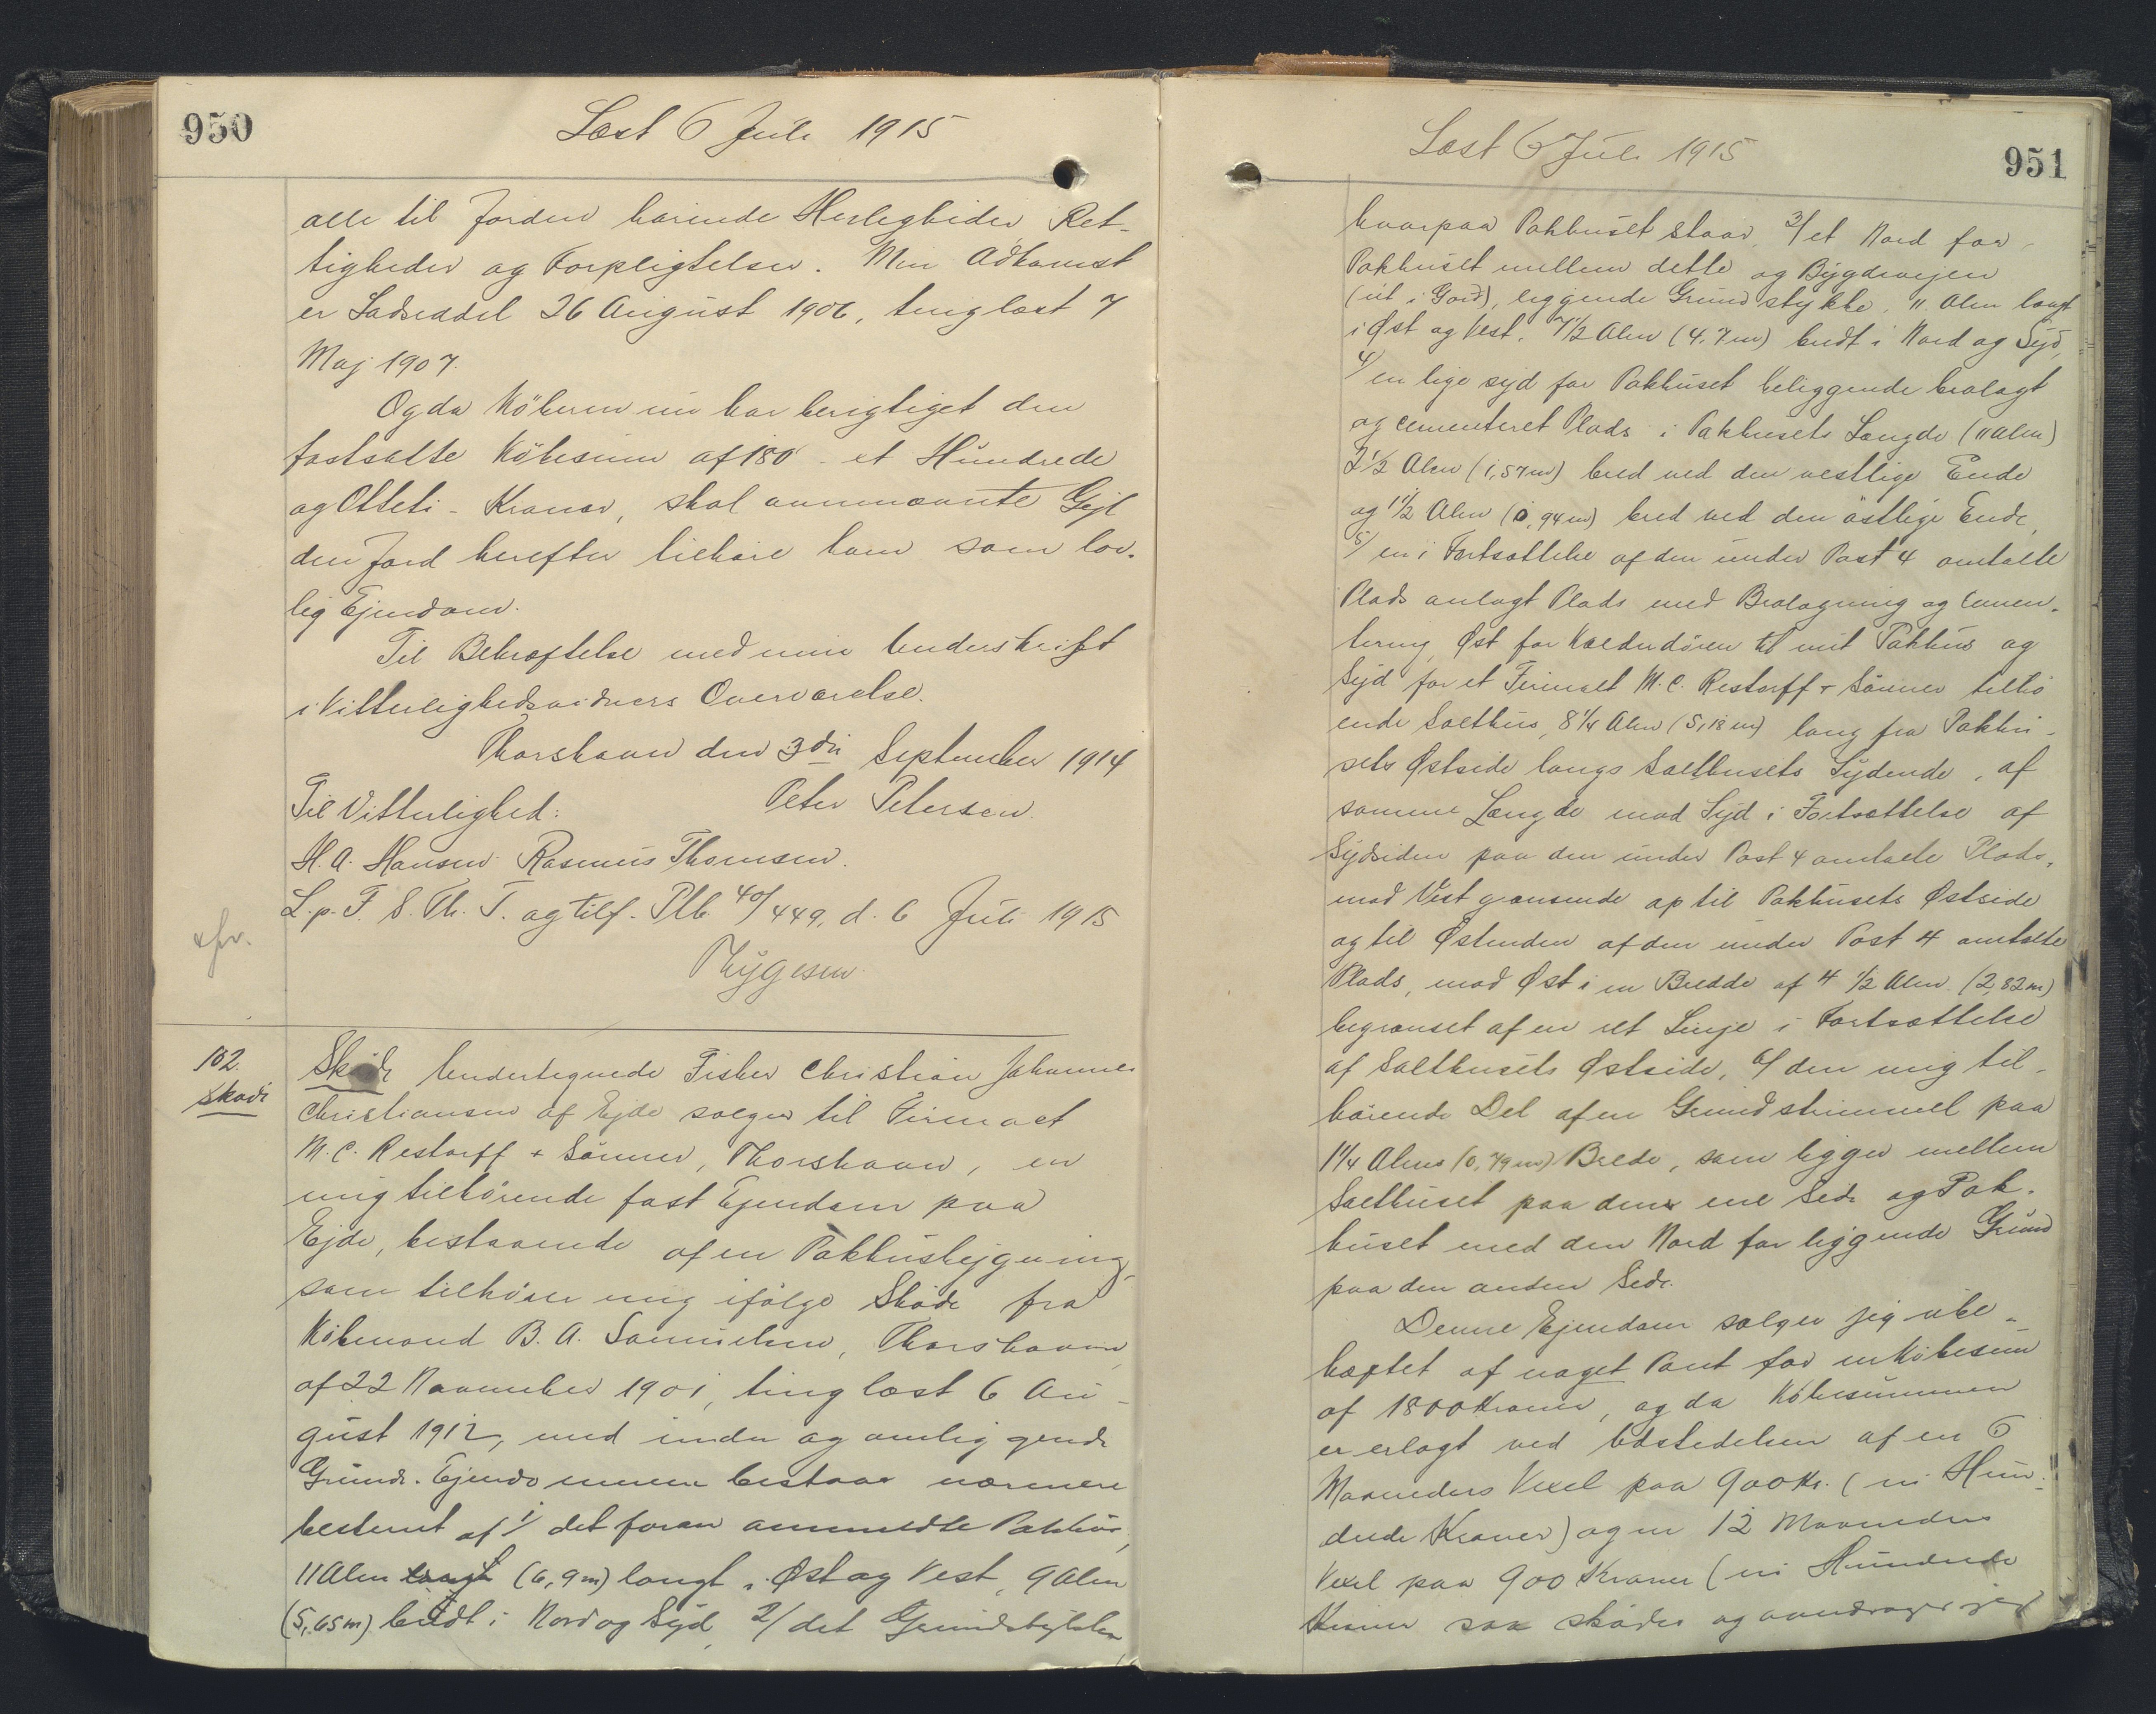 950
Læst 6 Juli 1915
alle til Jorden hørende Herligheder Ret-
tigheder og Forpligtelser. Min Adkomst
er Sadseddel 26 August 1906, tinglæst 7
Maj 1907.
Og da Köberen nu har berigtiget den
fastsatte Köbesum af 180 - et Hundrede
og Otteti - Kroner, skal ommeldte Gejl
den Jord herefter tilhøre ham som lov-
lig Ejendom.
Til Bekræftelse med min Underskrift
i Vitterlighedsvidners Overværelse.
Thorshavn den 3die September 1914
Peter Petersen.
Til Vitterlighed:
H. A. Hansen Rasmus Thomsen.
L. p. F. S. Th. T. og tilf. Plb. 40/449. d. 6 Juli 1915
cfr.
Thygesen
102.
Skøde
Skøde Undertegnede Fisker Christian Johannes
Christiansen af Ejde sælger til Firmaet
M. C. Restorff + Sönner, Thorshavn, en
mig tilhørende fast Ejendom paa
Ejde, bestaaende af en Pakhusbygning
som tilhører mig ifølge Skøde fra
Købmand B. A. Samuelsen, Thorshavn
af 22 November 1901, tinglæst 6 Au-
gust 1912, med under og omlig gende
Grund. Ejendommen bestaar nærmere
bestemt af 1/ det foran ommeldte Pakhus,
11 Alen langt (6,9 m) langt i Øst og Vest, 9 Alen
(5,65 m) bredt i Nord og Syd, 2/ det Grundstykke,
951
Læst 6 Juli 1915
hvorpaa Pakhuset staar, 3/ et Nord for
Pakhuset mellem dette og Bygdevejen
(út i Gord), liggende Grundstykke, 11 Alen langt
i Øst og Vest, 7½ Alen (4,7 m) bredt i Nord og Syd,
4/ en lige syd for Pakhuset beliggende brolagt
og cementeret Plads i Pakhusets Længde (11 Alen)
2½ Alen (1,57 m) bred ved den vestlige Ende
og 1½ Alen (0,94 m) bred ved den østlige Ende,
5/ en i Fortsættelse af den under Post 4 omtalte
Plads anlagt Plads med Brolægning og Cemen-
tering Øst for Kælderdøren til mit Pakhus og
Syd for et Firmaet M. C. Restorff + Sönner tilhø
ende Salthus, 8¼ Alen (5,18 m) lang fra Pakhu-
sets Østside langs Salthusets Sydende, af
samme Længde mod Syd i Fortsættelse af
Sydsiden paa den under Post 4 omtalte Plads,
mod Vest grænsende op til Pakhusets Østside
og til Østenden af den under Post 4 omtalte
Plads, mod Øst i en Bredde af 4 ½ Alen (2,82 m)
begrænset af en ret Linje i Fortsættelse
af Salthusets Østside, 6/ den mig til-
hørende Del af en Grundstrimmel paa
1¼ Alens (0,79 m) Brede, som ligger mellem
Salthuset paa den ene Side og Pak-
huset med den Nord for liggende Grund
paa den anden Side.
Denne Ejendom sælger jeg ube-
hæftet af noget Pant for en Købesum
af 1800 Kroner, og da Købesummen
er erlagt ved Udstedelsen af en 6
Maaneders Vexel paa 900 Kr. (ni Hun-
drede Kroner) og en 12 Maaneders
Vexel paa 900 Kroner (ni Hundrede
Kroner saa skøder og overdrager jeg